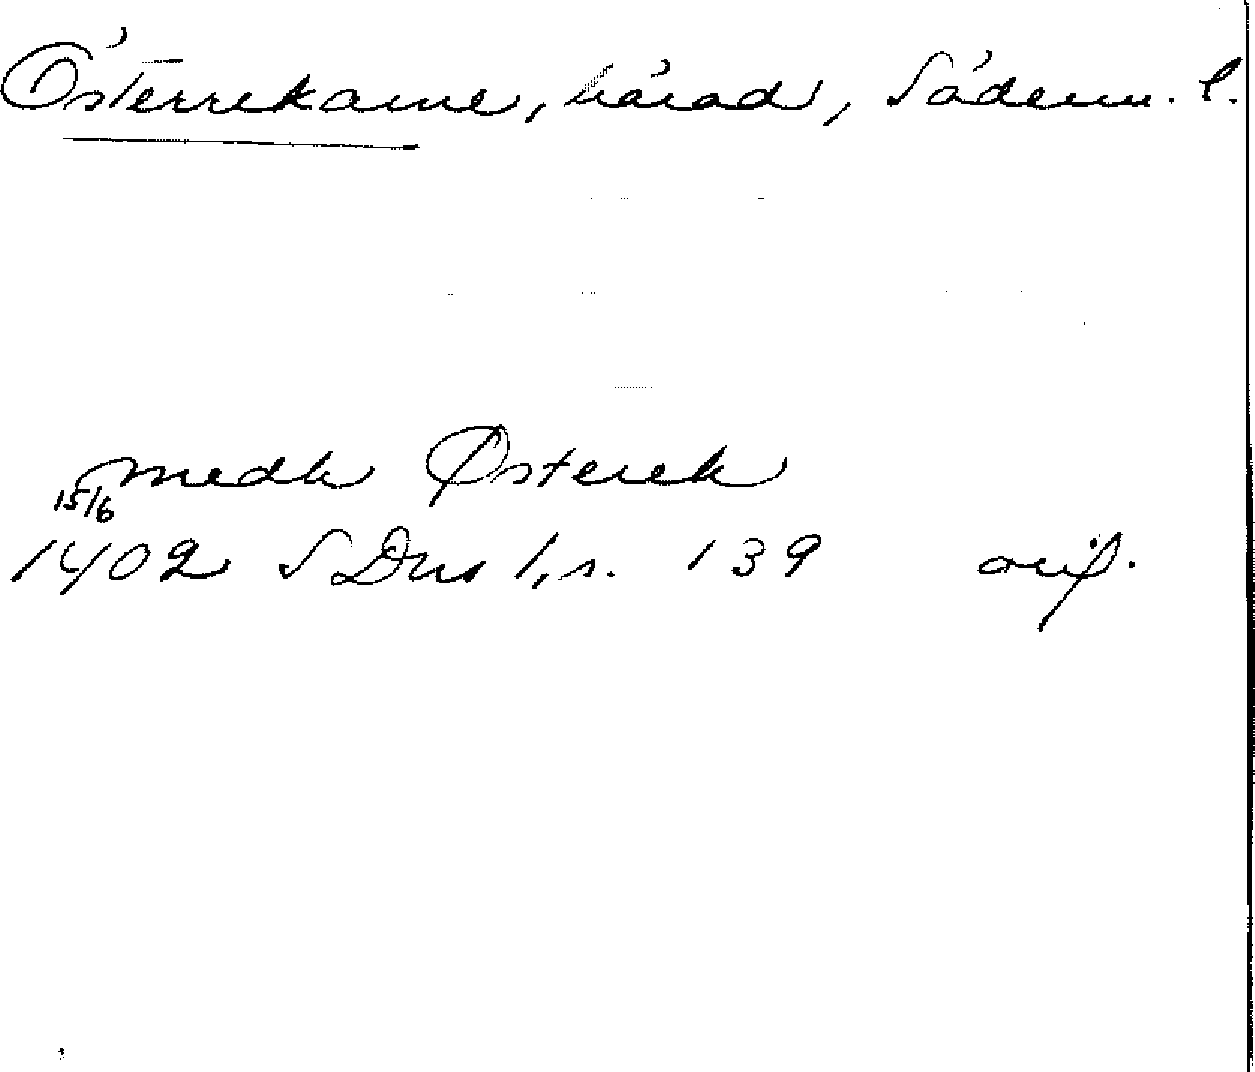 Österrekarne, härad, Söderm. l.
medh Østerek
15/6
1402 SDns 1, s. 139 orig.